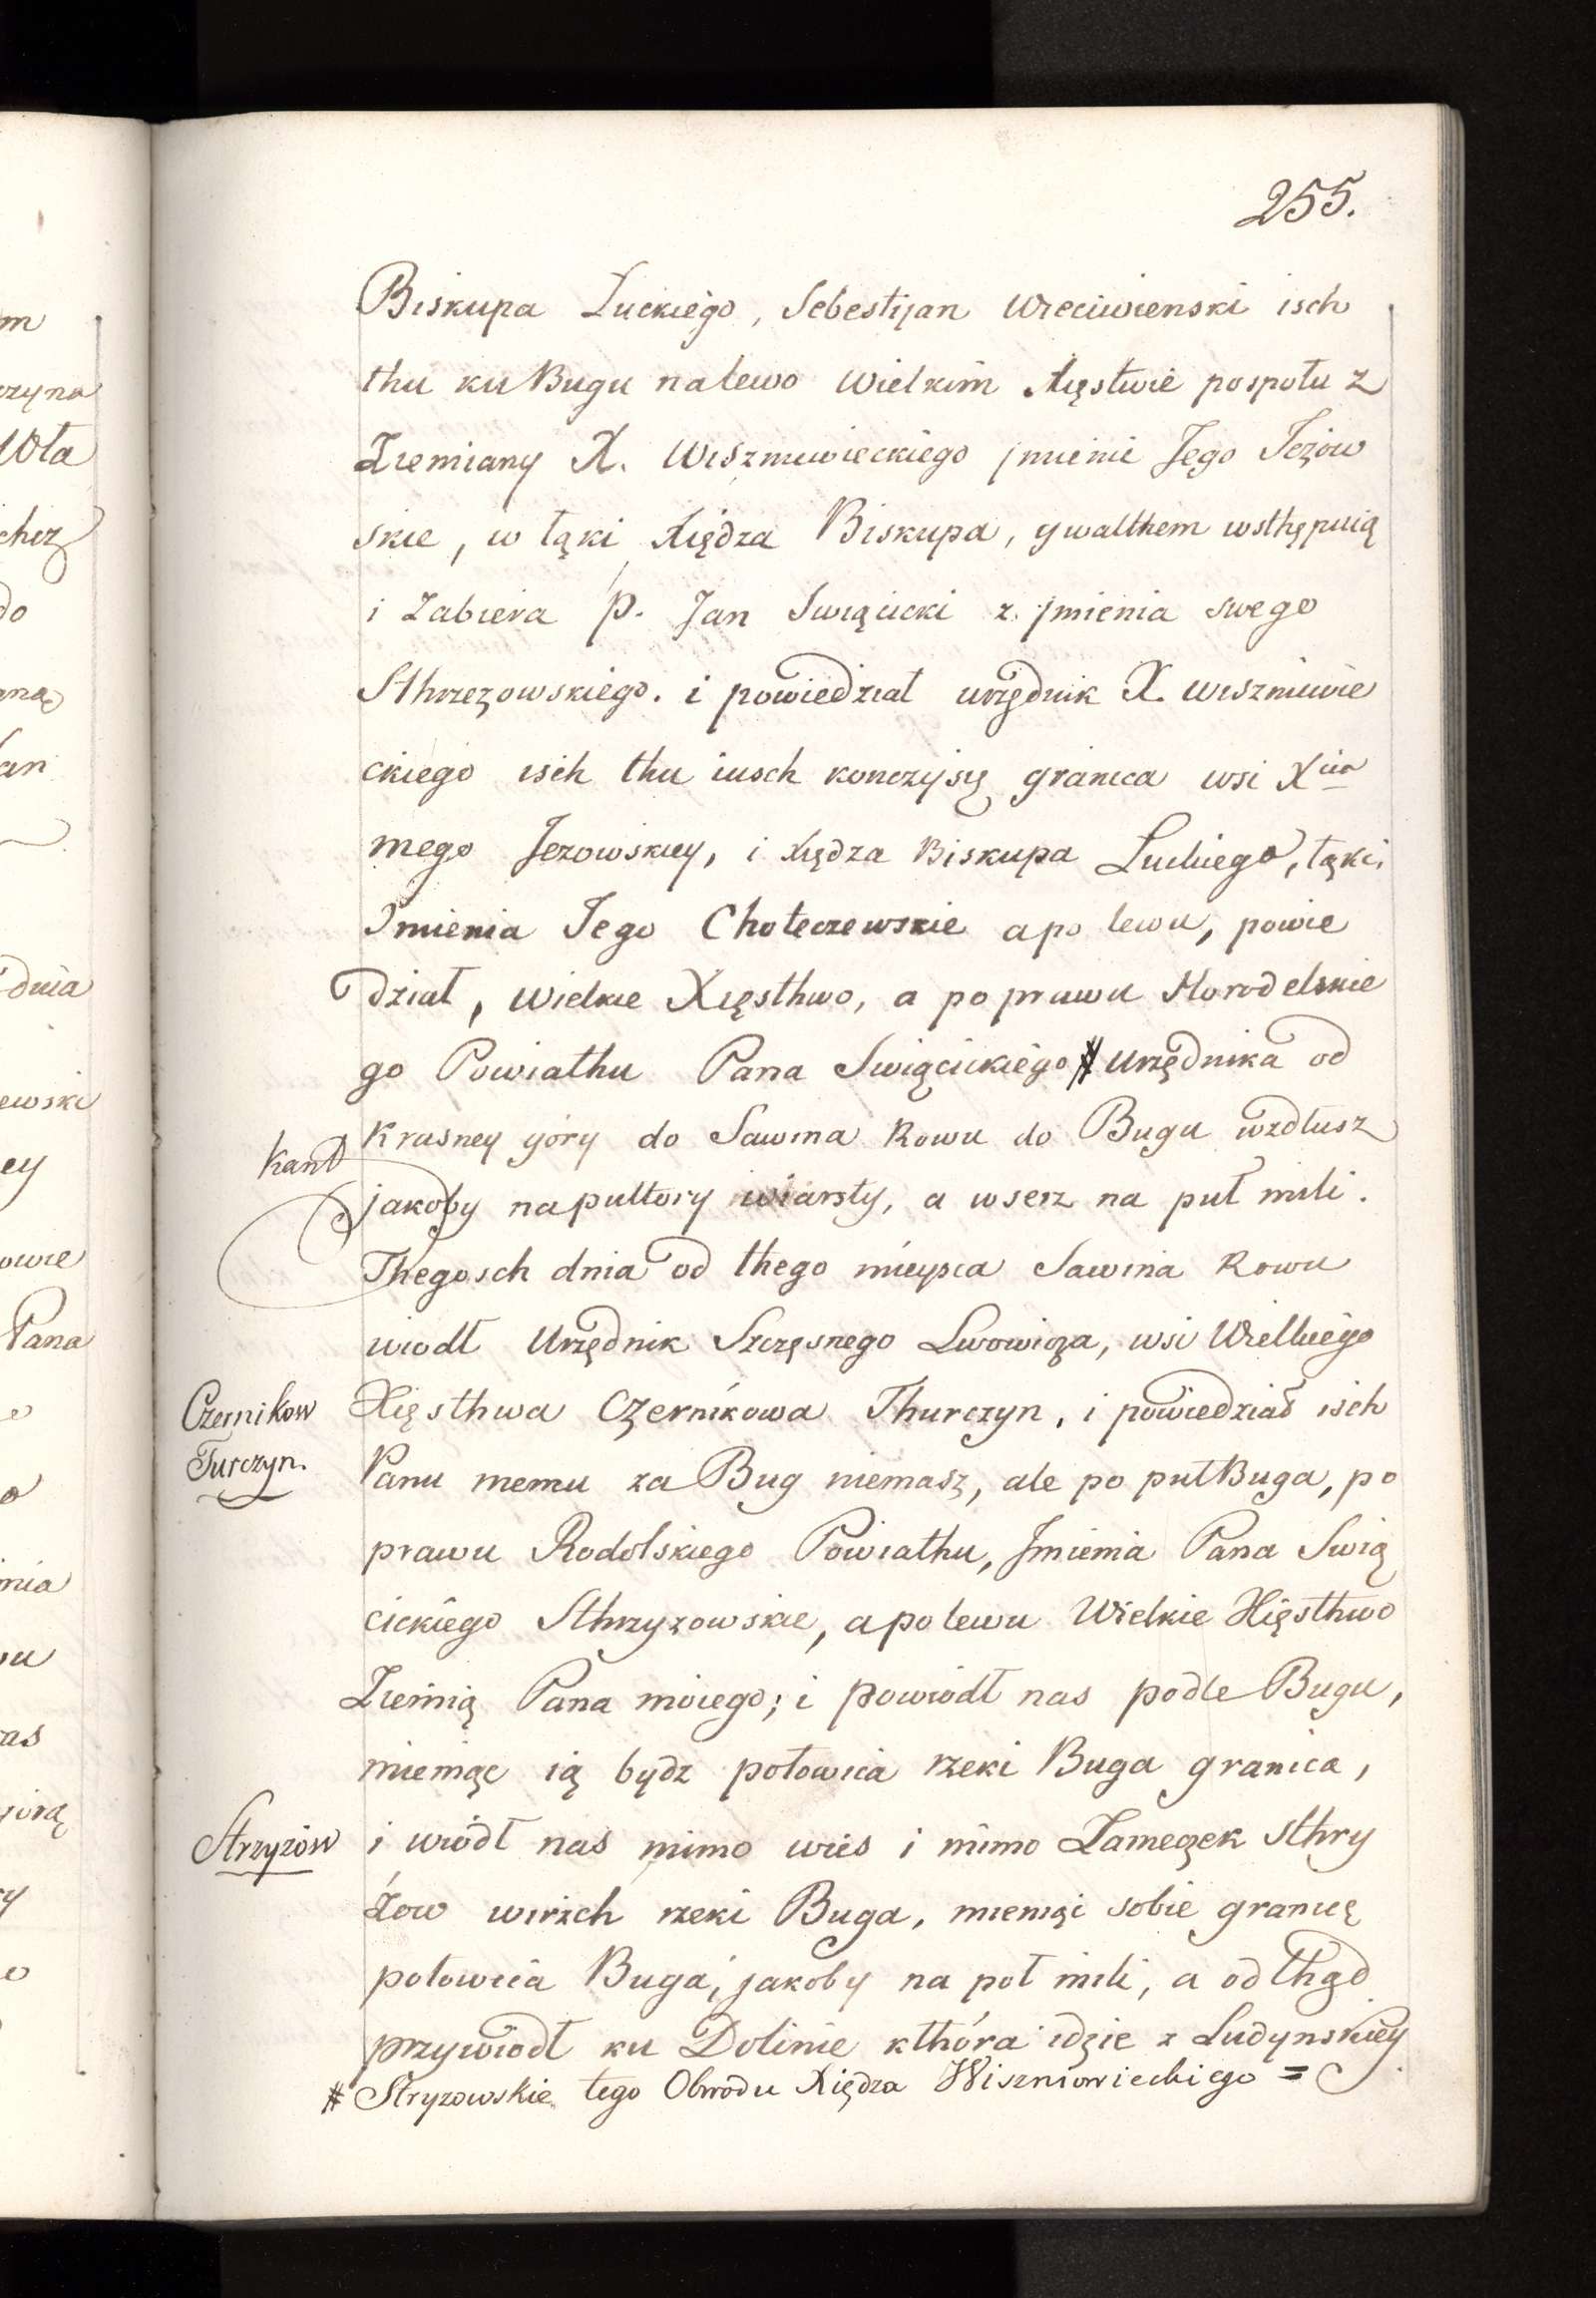 255.
Biskupa Łuckiego, Sebestijan Wreciwienski isch
thu ku Bugu nalewo Wielkim Xięstwie pospołu z
Ziemiany X. Wiszniewieckiego jmienie Jego Jezow
skie, w łąki Xiędza Biskupa, gwalthem wsthępuią
i Zabiera p. Jan Swiącicki z jmienia swego
Sthrzezowskiego. i powiedział urzędnik X. Wiszniewie
ckiego isch thu iusch konczy się granica wsi Xcia
mego Jezowskiey, i Xiędza Biskupa Luckiego, łąki,
Imienia Jego Choteczewskie a po lewu, powie
dział, Wielkie Xięsthwo, a po prawu Horodelskie
go Powiathu Pana Swiącickiego # Urzędnika od
Krasney góry do Sawina Rowu do Bugu wzdłusz
Kant
jakoby na pułtory wiarsty, a wserz na puł mili.
Thegosch dnia od thego mieysca Sawina Rowu
wiodł Urzędnik Szczęsnego Lwowicza, wsi Wielkiego
Czernikow
Xięsthwa Czernikowa Thurczyn, i powiedział isch
Turczyn.
Panu memu za Bug niemasz, ale po puł Buga, po
prawu Rodolskiego Powiathu, Jmienia Pana Swią
cickiego Sthrzyzowskie, a po lewu Wielkie Xięsthwo
Ziemią Pana moiego; i powiodł nas podle Bugu,
mieniąc ią bydz połowica rzeki Buga granica,
Strzyzów
i wiódł nas mimo wies i mimo Zameczek Sthry
żow wirzch rzeki Buga, mieniąc sobie granicę
połowica Buga, jakoby na poł mili, a od thąd
przywiodł ku Dolinie kthóra idzie z Ludynskiey
# Stryzowskie tego Obwodu Xiędza Wiszniowieckiego =